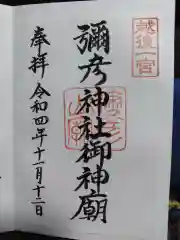 越後一宮
彌彦神社御神廟
奉拝
令和四年十一月十二日